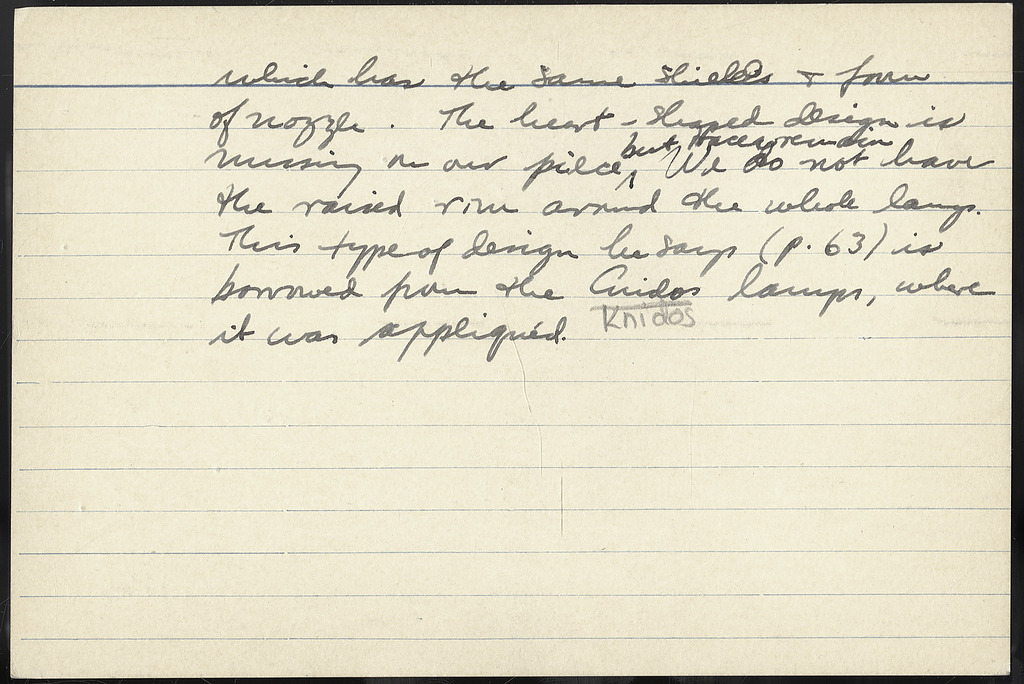 which has the same shields + form
of nozzle. The heart-shaped design is
missing on our piece, but traces remain We do not have
the raised rim around the whole lamp.
This type of design he says (p. 63) is
borrowed from the Cnidos lamps, where
Knidos
it was appliquéd.